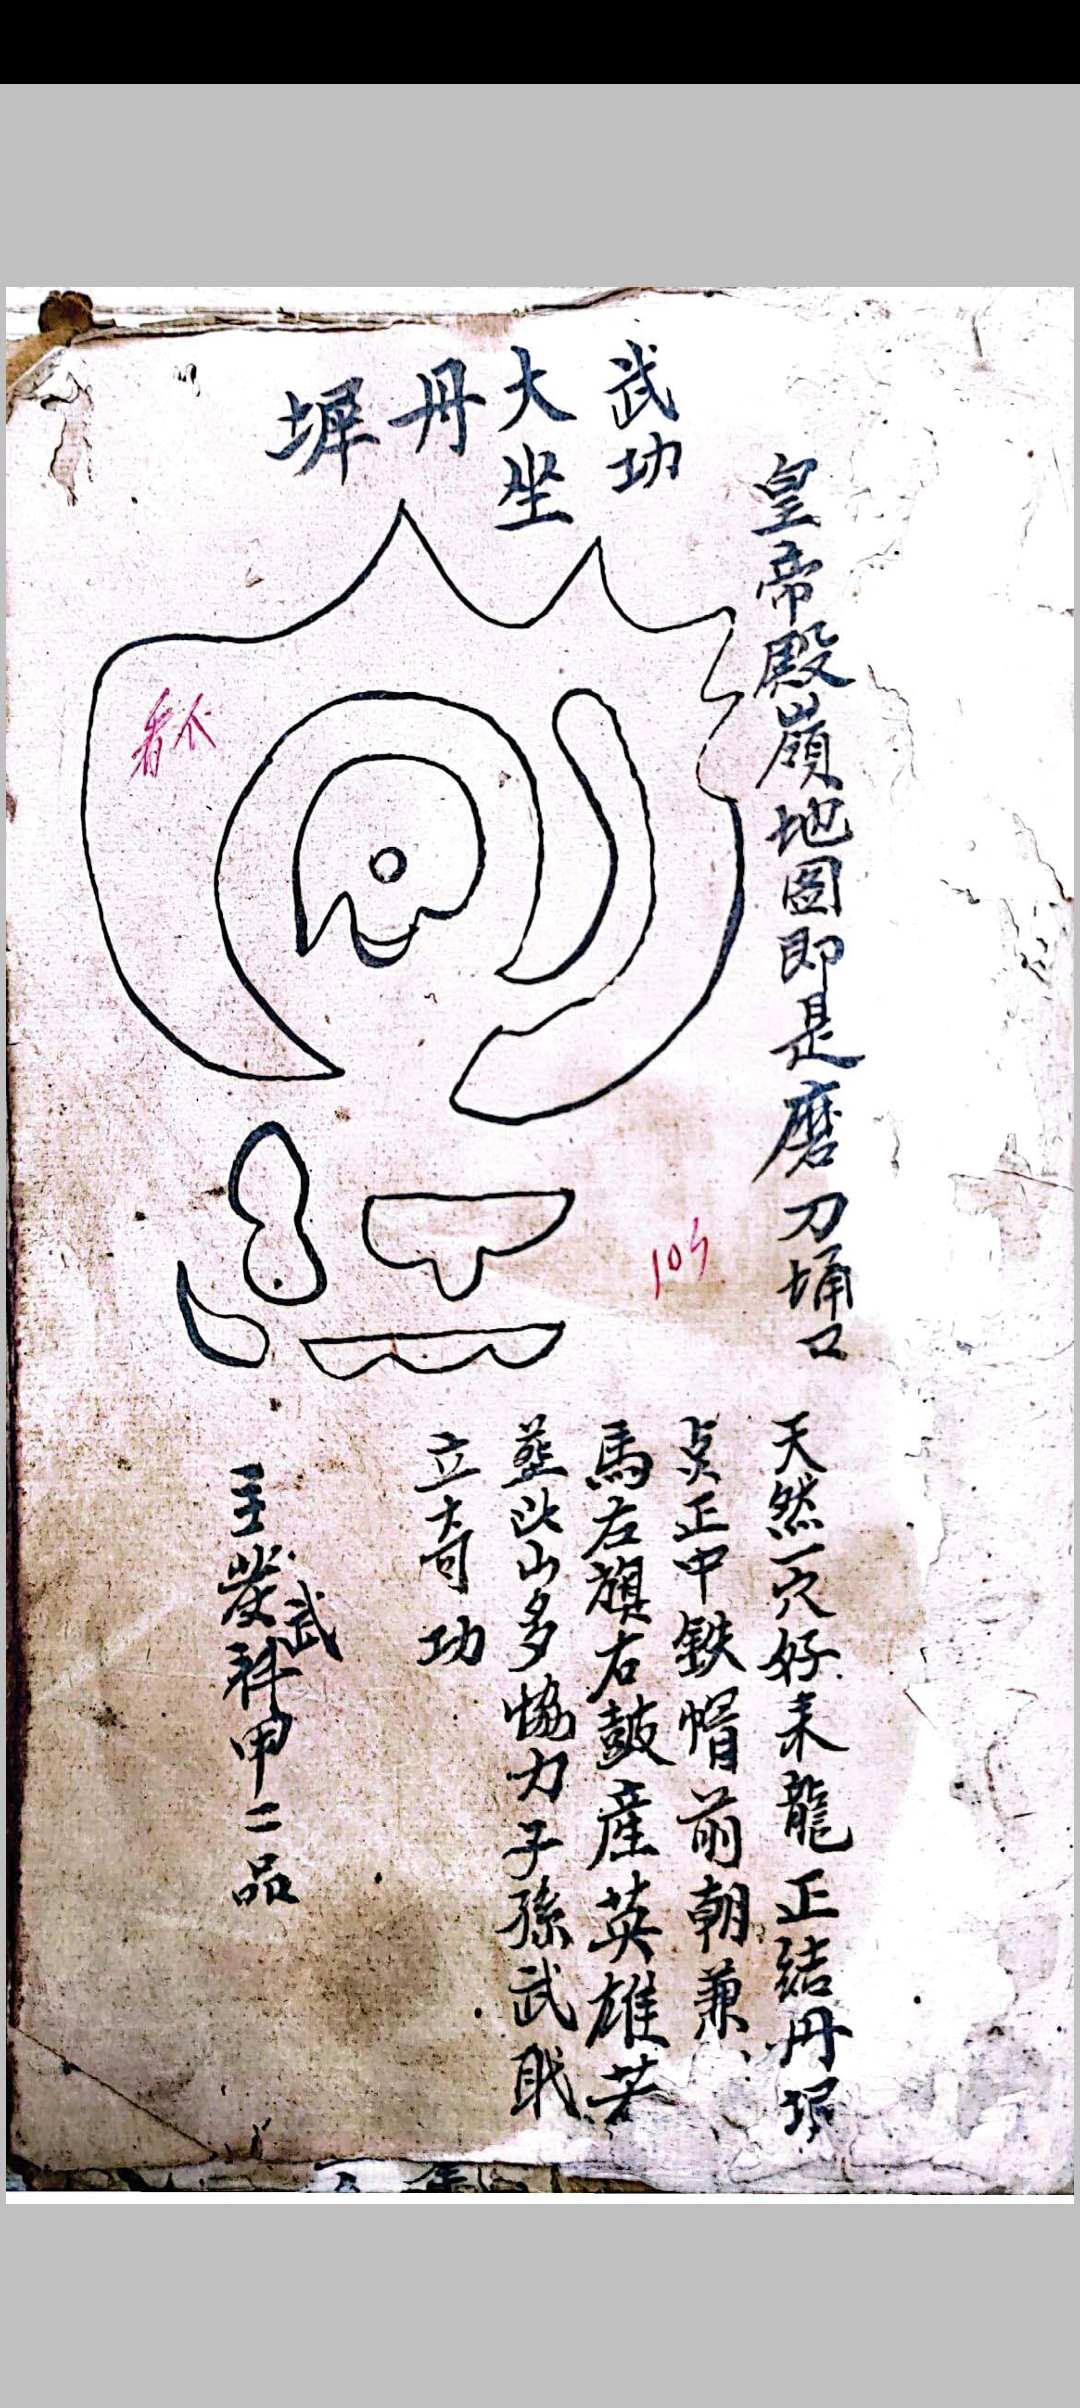 皇帝殿嶺地圖即是磨刀埇口
武功
大坐
丹墀
不看
109
天然一穴好来龍正結丹墀
貞正中鉄帽前朝兼
馬左旗右鼓産英雄若
塟此山多恊力子孫武職
立奇功
主發武科甲二品